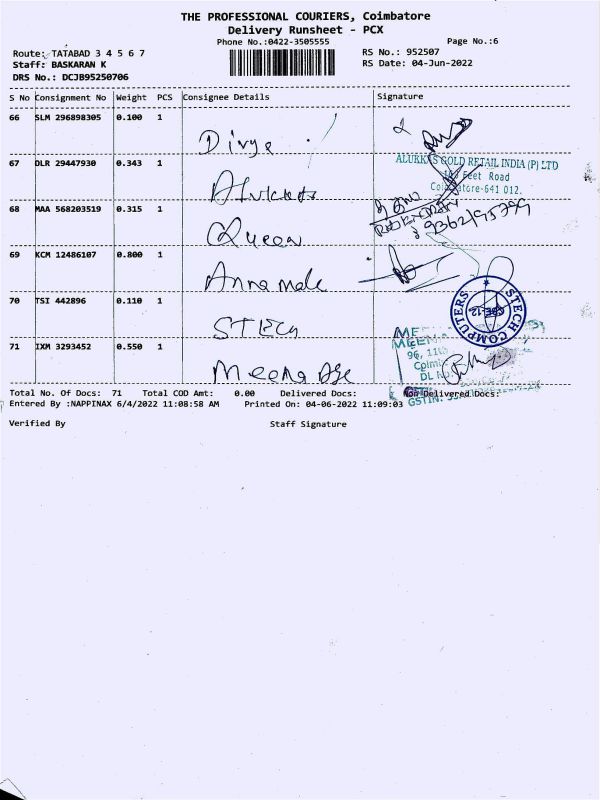 THE PROFESSIONAL COURIERS, Coimbatore
Delivery Runsheet - PCX
Phone No.:0422-3505555
Page No.:6
Route: TATABAD 3 4 5 6 7
RS No.: 952507
Staff: BASKARAN K
RS Date: 04-Jun-2022
DRS No.: DCJB95250706
S No Consignment No Weight PCS Consignee Details Signature
66 SLM 296898305 0.100 1
Divya
67 DLR 29447930 0.343 1
ALUKKAS GOLD RETAIL INDIA (P) LTD
Feet Road
Coimbatore-641 012.
Alukkas
68 MAA 568203519 0.315 1
Queen
69 KCM 12486107 0.800 1
Anna male
70 TSI 442896 0.110 1
STECH COMPUTERS
CBE-12
STECH
71 IXM 3293452 0.550 1
96,
DL No.
Meena
Total No. Of Docs: 71 Total COD Amt: 0.00 Delivered Docs: Non Delivered Docs:
GSTIN:
Entered By :NAPPINAX 6/4/2022 11:08:58 AM Printed On: 04-06-2022 11:09:03
Verified By Staff Signature